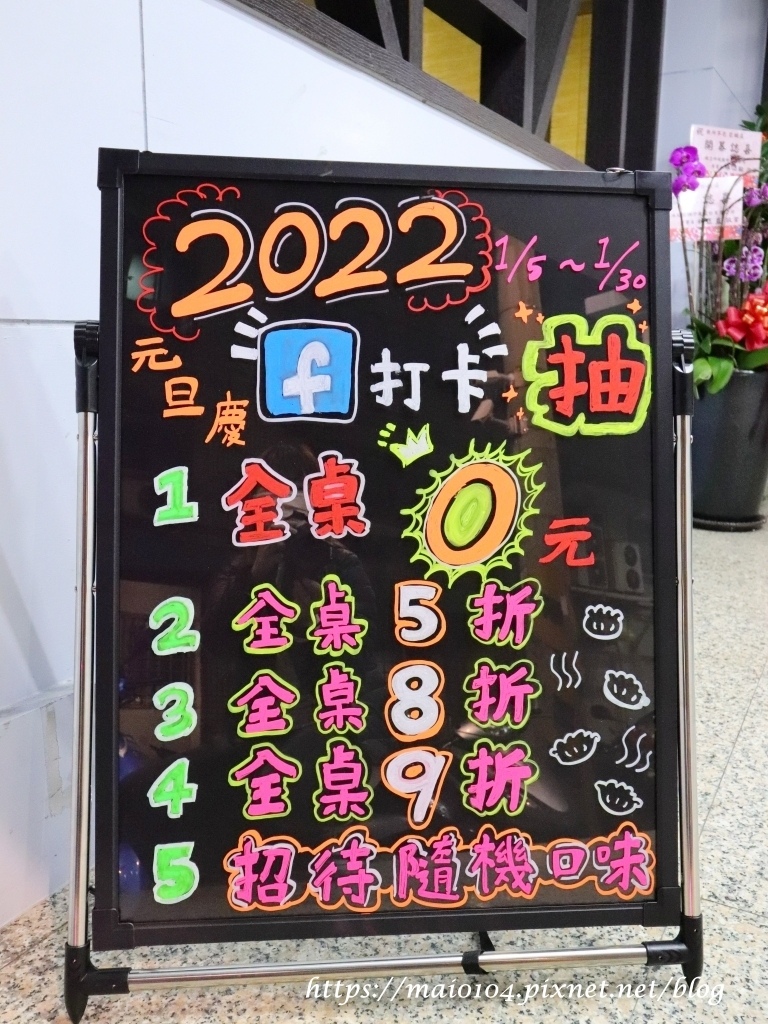 2022 1/5~1/30
元旦慶 f 打卡 抽
1 全桌 0 元
2 全桌 5 折
3 全桌 8 折
4 全桌 9 折
5 招待隨機回味
開幕誌喜
https://maio104.pixnet.net/blog